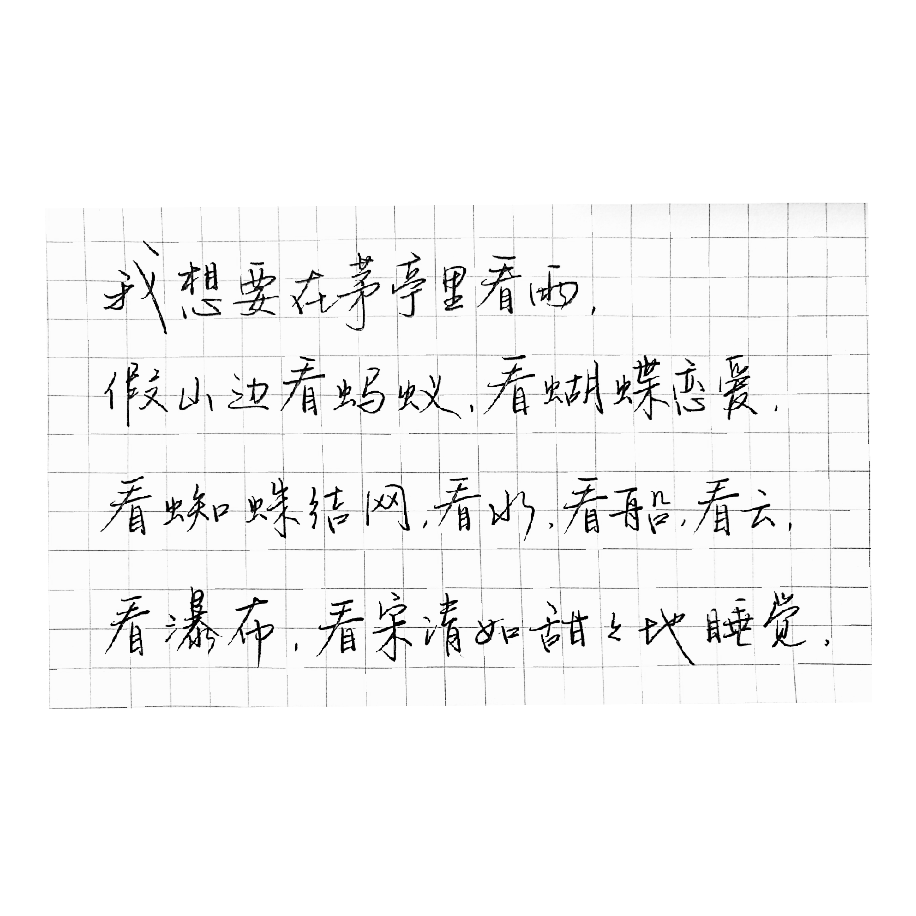 我想要在茅亭里看雨,
假山边看蚂蚁,看蝴蝶恋爱,
看蜘蛛结网,看水,看船,看云,
看瀑布,看宋清如甜々地睡觉.